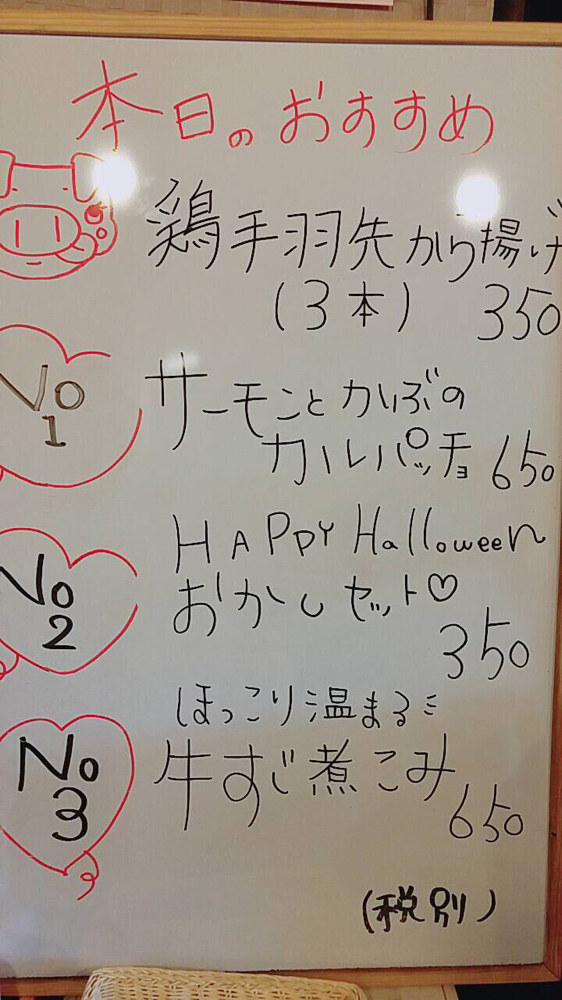 本日のおすすめ
鶏手羽先から揚げ
(3本) 350
No
1
サーモンとかぶの
カルパッチョ 650
No
2
HAPPY Halloween
おかしセット♡
350
ほっこり温まる
No
3
牛すじ煮こみ
650
(税別)